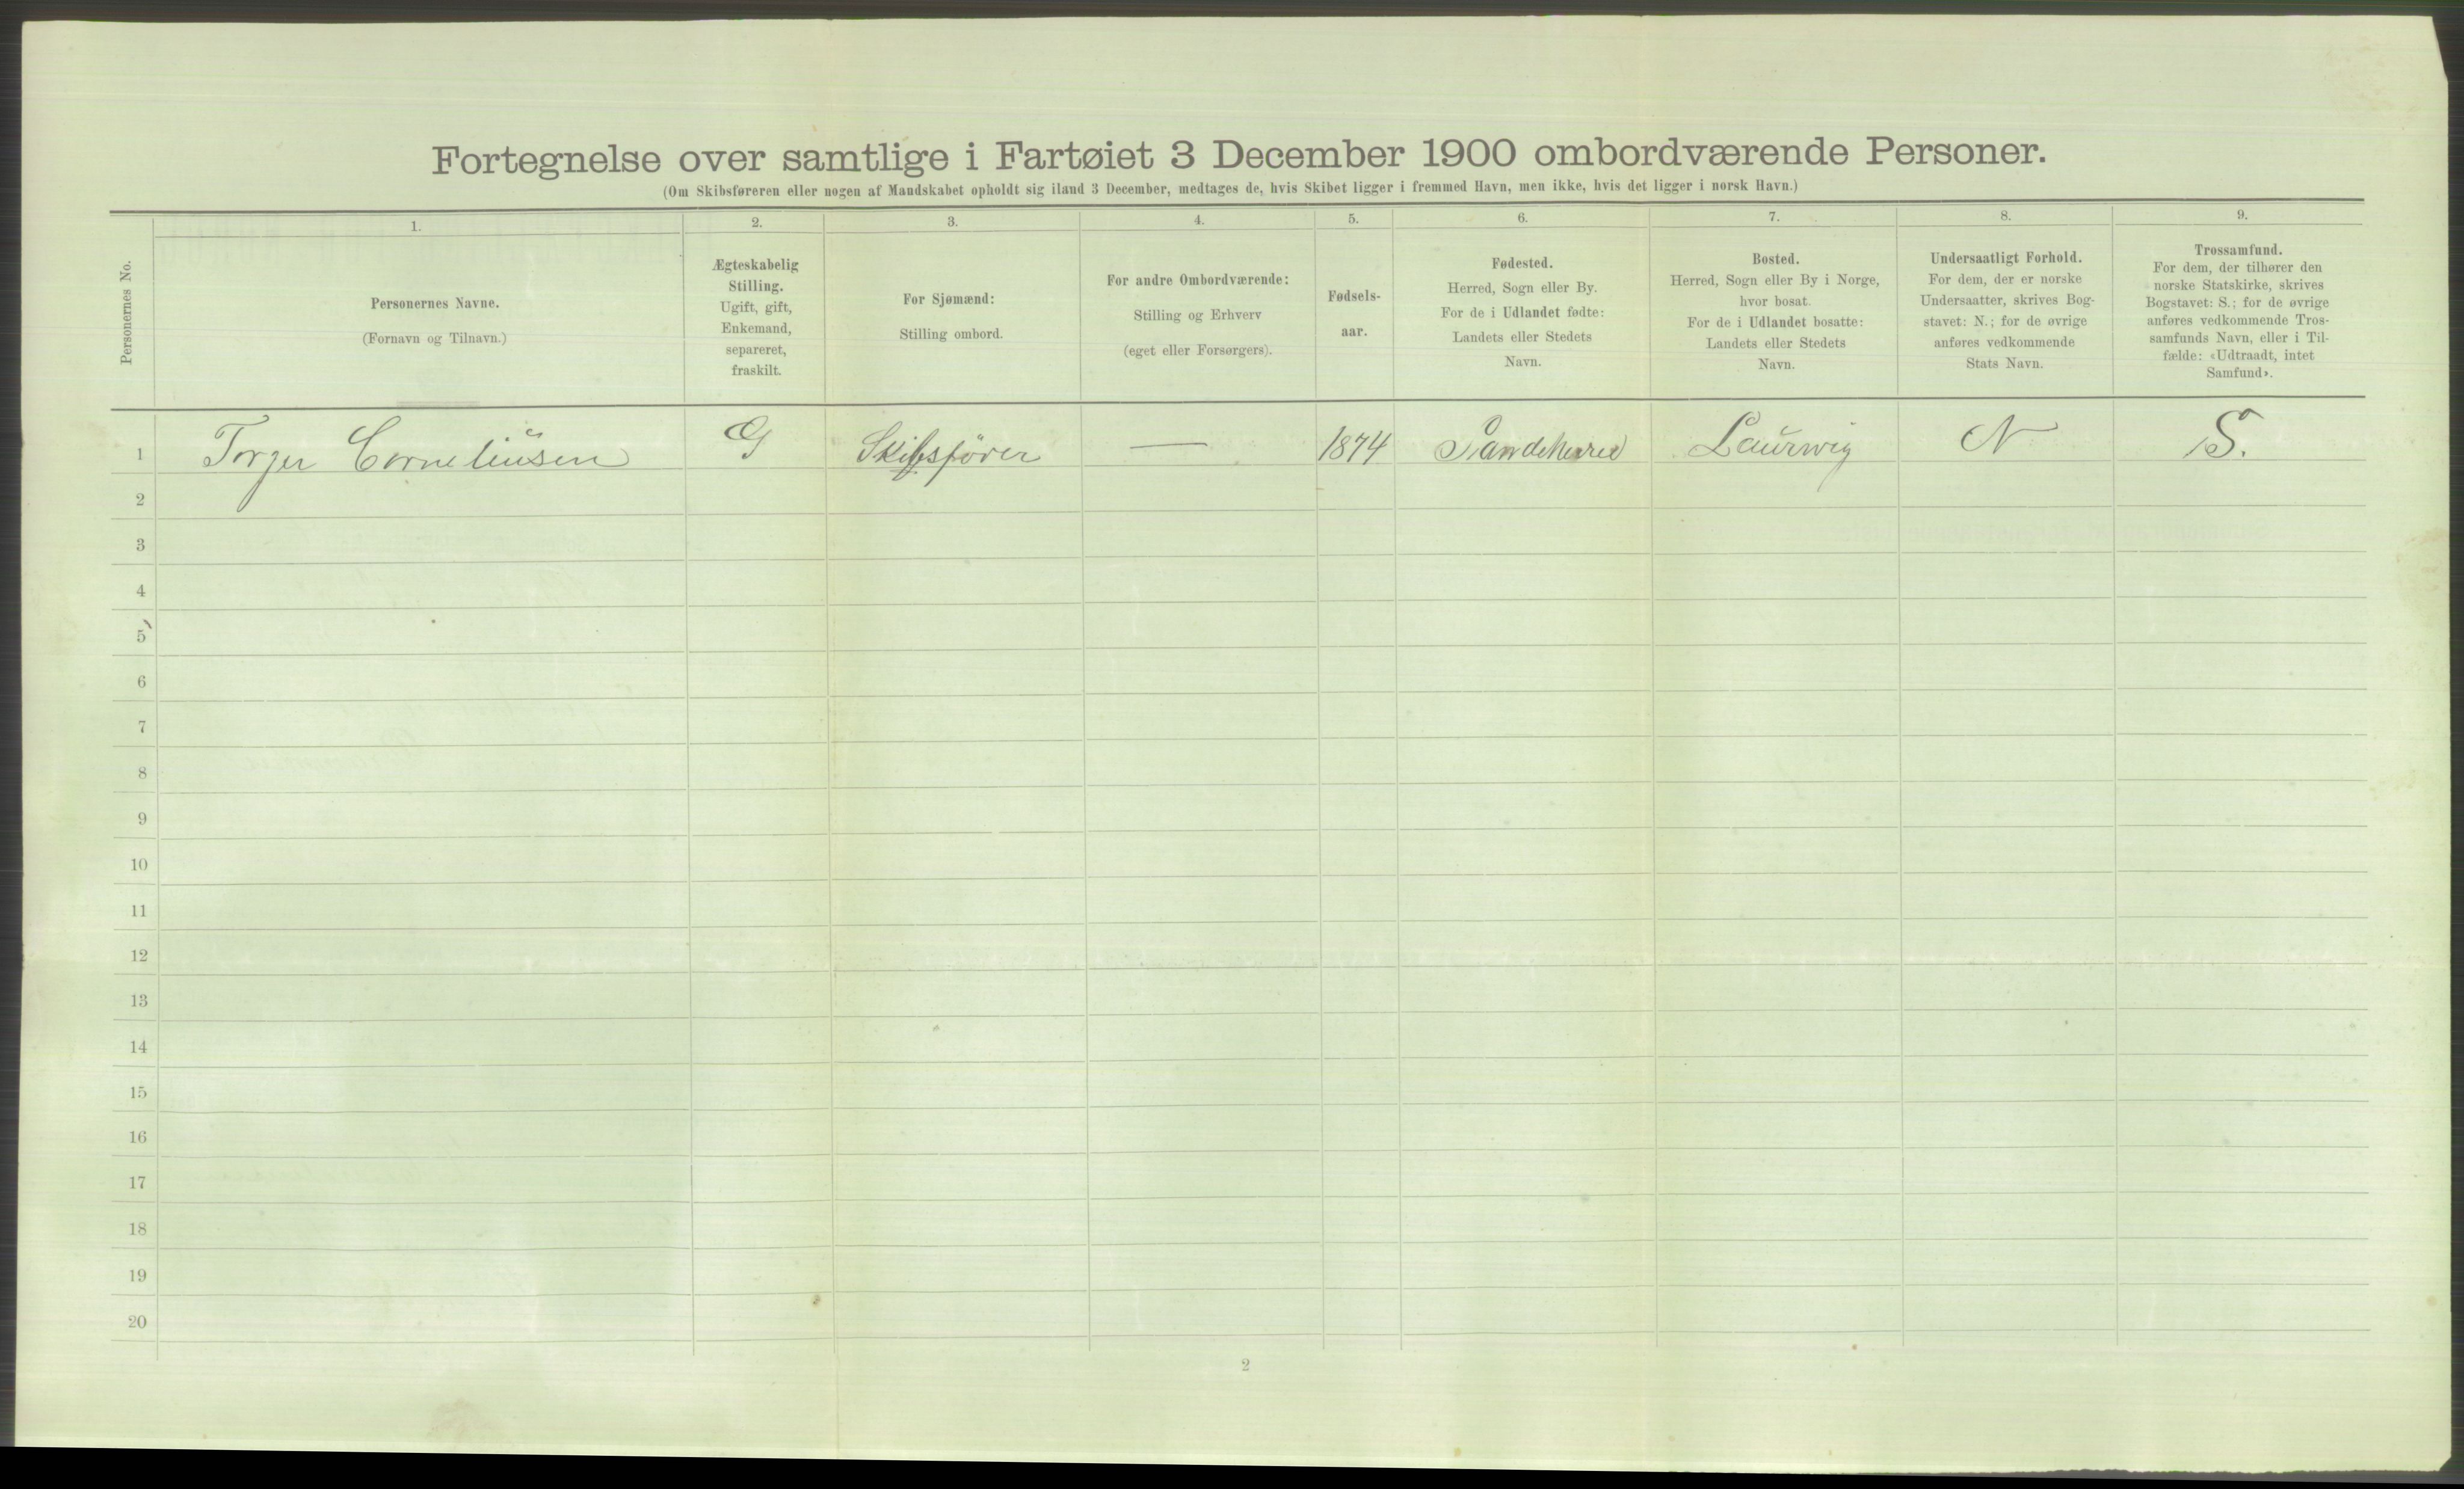 Fortegnelse over samtlige i Fartøiet 3 December 1900 ombordværende Personer.
(Om Skibsføreren eller nogen af Mandskabet opholdt sig iland 3 December, medtages de, hvis Skibet ligger i fremmed Havn, men ikke, hvis det ligger i norsk Havn.)
Personernes No.
1.
Personernes Navne.
(Fornavn og Tilnavn.)
2.
Ægteskabelig
Stilling.
Ugift, gift,
Enkemand,
separeret,
fraskilt.
3.
For Sjømænd:
Stilling ombord.
4.
For andre Ombordværende:
Stilling og Erhverv
(eget eller Forsørgers).
5.
Fødsels-
aar.
6.
Fødested.
Herred, Sogn eller By.
For de i Udlandet fødte:
Landets eller Stedets
Navn.
7.
Bosted.
Herred, Sogn eller By i Norge,
hvor bosat.
For de i Udlandet bosatte:
Landets eller Stedets
Navn.
8.
Undersaatligt Forhold.
For dem, der er norske
Undersaatter, skrives Bog-
stavet: N.; for de øvrige
anføres vedkommende
Stats Navn.
9.
Trossamfund.
For dem, der tilhører den
norske Statskirke, skrives
Bogstavet: S.; for de øvrige
anføres vedkommende Tros-
samfunds Navn, eller i Til-
fælde: «Udtraadt, intet
Samfund».
1 Torger Corneliusen G Skibsfører — 1874 Sandeherred Laurwig N S.
2
3
4
5
6
7
8
9
10
11
12
13
14
15
16
17
18
19
20
2